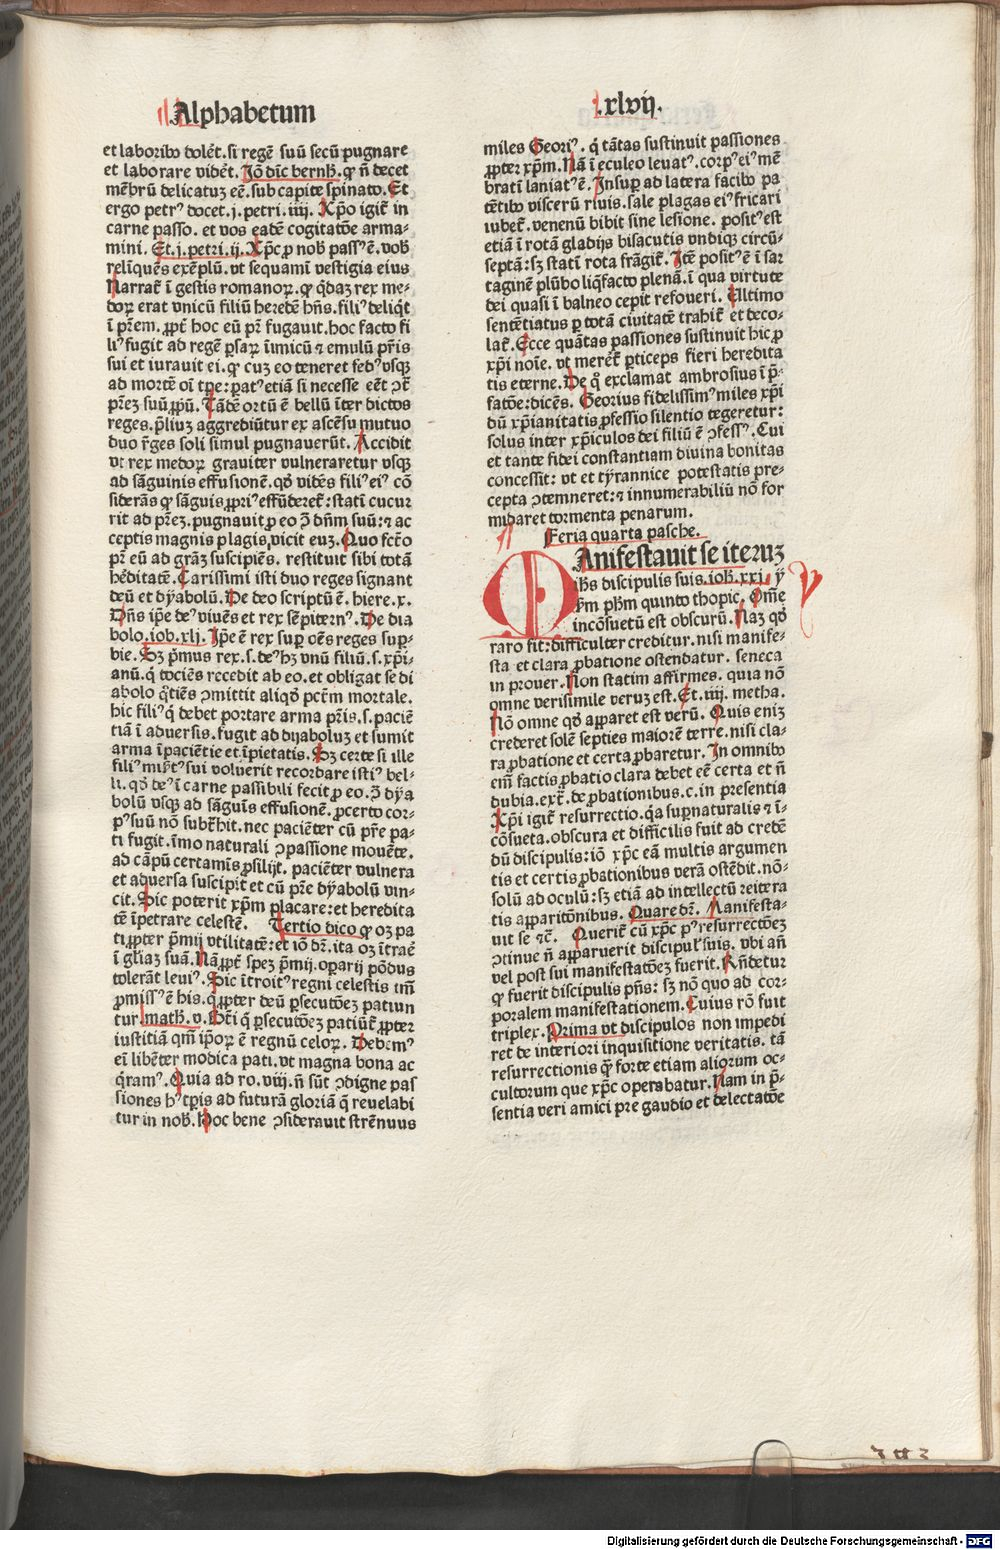 Alphabetum
.xlvij.
et laboribꝰ dolēt. si regē suū secū pugnare
et laborare vidēt. Jō dīc bernħ. ꝙ ñ decet
mēbrū delicatuꝫ eē. sub capite spinato. Et
ergo petrꝰ docet. j. petri. iiij. Xp̄o igit̄ in
carne passo. et vos eadē cogitatōe arma-
mini. Et. j. petri. ij. Xp̄c ꝓ nob̄ passꝰ ē. vob̄
relīquēs exēplū. vt sequamī vestigia eius
Narrat̄ ī gestis romanoꝝ. ꝙ q̄daꝫ rex me-
doꝝ erat vnicū filiū heredē hn̄s. filiꝰ deliq̄t
ī pr̄em. ꝓpt̄ hoc eū pr̄ fugauit. hoc facto fi
liꝰ fugit ad regē ꝑsaꝝ īimicū ⁊ emulū pr̄is
sui et iurauit ei. ꝙ cuꝫ eo teneret fedꝰ vsqꝫ
ad mortē oī tꝑe: patꝰ etiā si necesse eēt ↄt̄
pr̄eꝫ suū ꝓpū. Tādē ortū ē bellū īter dictos
reges. p̄liuꝫ aggrediūtur ex ascēsu mutuo
duo r̄ges soli simul pugnauerūt. Accidit
vt rex medoꝝ grauiter vulneraretur vsqꝫ
ad sāguinis effusionē. qd̄ vidēs filiꝰ eiꝰ cō
siderās ꝙ sāguis ꝓpriꝰ effūderet̄: statī cucur
rit ad pr̄eꝫ. pugnauit ꝓ eo ↄ̄ dn̄m suū: ⁊ ac
ceptis magnis plagis, vicit euꝫ. Quo fct̄o
pr̄ eū ad grāꝫ suscipiēs. restituit sibi totā
hēditatē. Carissimi isti duo reges signant
deū et dyabolū. De deo scriptū ē. hiere. x.
Dn̄s ip̄e deꝰ viuēs et rex sēpiternꝰ. De dia
bolo. iob. xlj. Ip̄e ē rex suꝑ oēs reges suꝑ-
bie. Sꝫ p̄mus rex. s. deꝰ hꝫ vnū filiū. s. xp̄i-
anū. q̄ tociēs recedit ab eo. et obligat se di
abolo q̄tiēs ↄmittit aliqd̄ pctm̄ mortale.
hic filiꝰ q̄ debet portare arma pr̄is. s. paciē
tiā ī aduersis. fugit ad dyaboluꝫ et sumit
arma īpaciētie et īpietatis. Sꝫ certe si ille
filiꝰ mikt̄ꝰ sui voluerit recordare istiꝰ bel-
li. qd̄ deꝰ ī carne passibili fecit ꝓ eo. ↄ̄ dya
bolū vsqꝫ ad sāguīs effusionē. ꝓcerto cor-
pꝰ suū nō subt̄hit. nec paciēter cū pr̄e pa-
ti fugit. īmo naturali ↄpassione mouēte.
ad cāpū certamīs ꝓsilijt. paciēter vulnera
et aduersa suscipit et cū pr̄e dyabolū vin-
cit. Sic poterit xp̄m placare: et heredita
tē īpetrare celestē. Tertio dico ꝙ oꝫ pa
ti ꝓpter p̄mij vtilitatē: et iō dr̄. ita oꝫ ītraē
ī gl̄iaꝫ suā. Nā ꝓpt̄ speꝫ p̄mij. oparij pōdus
tolerāt leuiꝰ. Sic ītroitꝰ regni celestis iñi
ꝓmissꝰ ē his. q̄ ꝓpter deū ꝑsecutōeꝫ patiun
tur. math̄. v. Bt̄i q̄ ꝑsecutōeꝫ patiūt̄ ꝓpter
iustitiā qm̄ ip̄oꝝ ē regnū celoꝝ. Debemꝰ
eī libēter modica pati. vt magna bona ac
q̄ramꝰ. Quia ad ro. viij. ñ sūt ↄdigne pas
siones hꝰ tꝑis ad futurā gloriā q̄ reuelabi
tur in nob̄. Hoc bene ↄsiderauit strēnuus
miles Georiꝰ. q̄ tātas sustinuit passiones
ꝓpter xp̄m. Nā ī eculeo leuatꝰ. corpꝰ eiꝰ mē
bratī laniatꝰ ē. Insuꝑ ad latera facibꝰ pa
tētibꝰ viscerū riuis. sale plagas eiꝰ fricari
iubet̄. venenū bibit sine lesione. positꝰ est
etiā ī rotā gladijs bisacutis vndiqꝫ circū-
septā: sꝫ statī rota frāgit̄. Itē positꝰ ē ī sar
taginē plūbo liq̄facto plenā. ī qua virtute
dei quasi ī balneo cepit refoueri. Ultimo
sentētiatus ꝑ totā ciuitatē trahit̄ et deco-
lat̄. Ecce quātas passiones sustinuit hic ꝓ
xp̄i noīe. vt meret̄ ꝑticeps fieri heredita
tis eterne. De q̊ exclamat ambrosius ī p̄-
fatōe: dicēs. Georius fidelissimꝰ miles xp̄i
dū xp̄ianitatis ꝓfessio silentio tegeretur:
solus inter xp̄iculos dei filiū ē ↄfessꝰ. Cui
et tante fidei constantiam diuina bonitas
concessit: vt et tyrannice potestatis pre-
cepta ↄtemneret: ⁊ innumerabiliū nō for
midaret tormenta penarum.
Feria quarta pasche.
MAnifestauit se iteruꝫ
ihs discipulis suis. ioħ. xxi. ꝟ
p̄m ph̄m quinto thopic. Om̄e
incōsuetū est obscurū. Naꝫ qd̄
raro fit: difficulter creditur. nisi manife-
sta et clara ꝓbatione ostendatur. seneca
in prouer. Non statim affirmes. quia nō
omne verisimile veruꝫ est. Et. iiij. metha.
Nō omne qd̄ apparet est verū. Quis eniꝫ
crederet solē septies maiorē terre. nisi cla-
ra ꝓbatione et certa ꝓbaretur. In omnibꝰ
em̄ factis ꝓbatio clara debet eē certa et ñ
dubia. ext̄. de ꝓbationibus. c. in presentia
Xp̄i igit̄ resurrectio. q̄a suꝑnaturalis ⁊ ī-
cōsueta. obscura et difficilis fuit ad credē
dū discipulis: iō xp̄c eā multis argumen
tis et certis ꝓbationibus verā ostēdit. nō-
solū ad oculū: sꝫ etiā ad intellectū reitera
tis apparitōnibus. Quare dr̄. Manifesta-
uit se ⁊c̄. Querit̄ cū xp̄c pꝰ resurrectōeꝫ
ↄtinue ñ apparuerit discipul̄ suis. vbi añ
vel post sui manifestatōeꝫ fuerit. Rn̄detur
ꝙ fuerit discipulis pn̄s: sꝫ nō quo ad cor-
poralem manifestationem. Cuius rō fuit
triplex. Prima vt discipulos non impedi
ret de interiori inquisitione veritatis. tā
resurrectionis q̄ꝫ forte etiam aliorum oc-
cultorum que xp̄c operabatur. Nam in p̄-
sentia veri amici pre gaudio et delectatōe
Digitalisierung gefördert durch die Deutsche Forschungsgemeinschaft - DFG